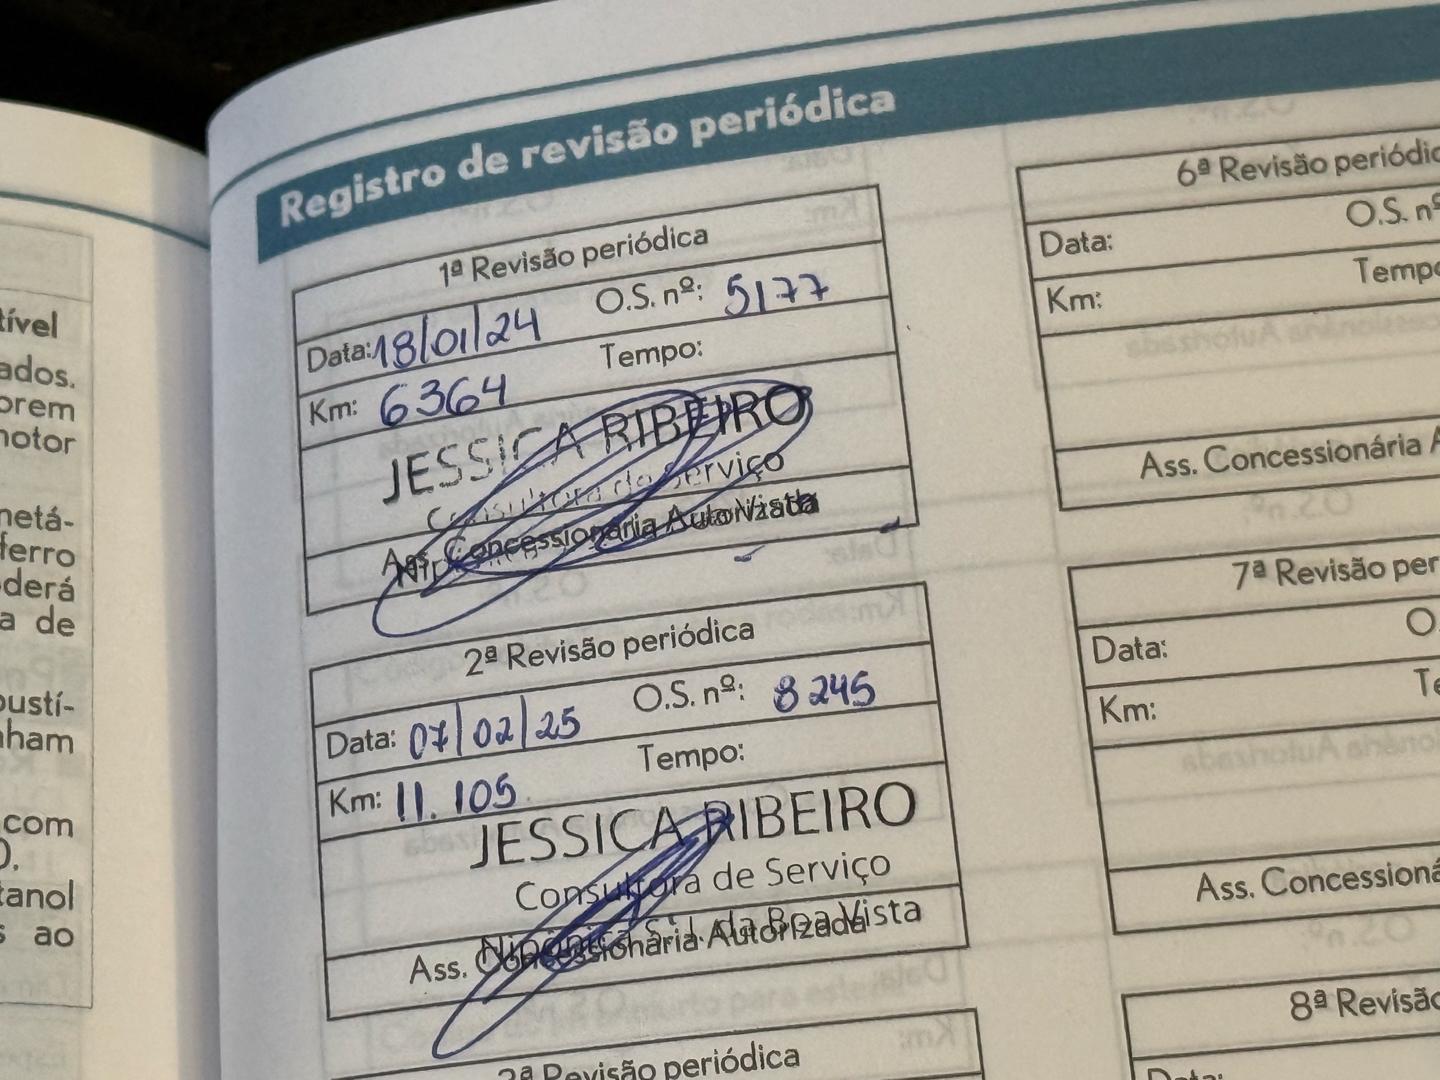 Registro de revisão periódica
1ª Revisão periódica
Data: 18/01/24 O.S. nº: 5177
Km: 6364 Tempo:
JESSICA RIBEIRO
Consultora de Serviço
Ass. Concessionária Autorizada
2ª Revisão periódica
Data: 07/02/25 O.S. nº: 8245
Km: 11.105 Tempo:
JESSICA RIBEIRO
Consultora de Serviço
Nipônica S. J. da Boa Vista
Ass. Concessionária Autorizada
3ª Revisão periódica
6ª Revisão periódic
O.S. nº
Data:
Tempo
Km:
Ass. Concessionária A
7ª Revisão per
O.
Data:
Te
Km:
Ass. Concessioná
8ª Revisão
Data:
tível
ados.
orem
notor
netá-
ferro
derá
a de
bustí-
nham
com
tanol
s ao